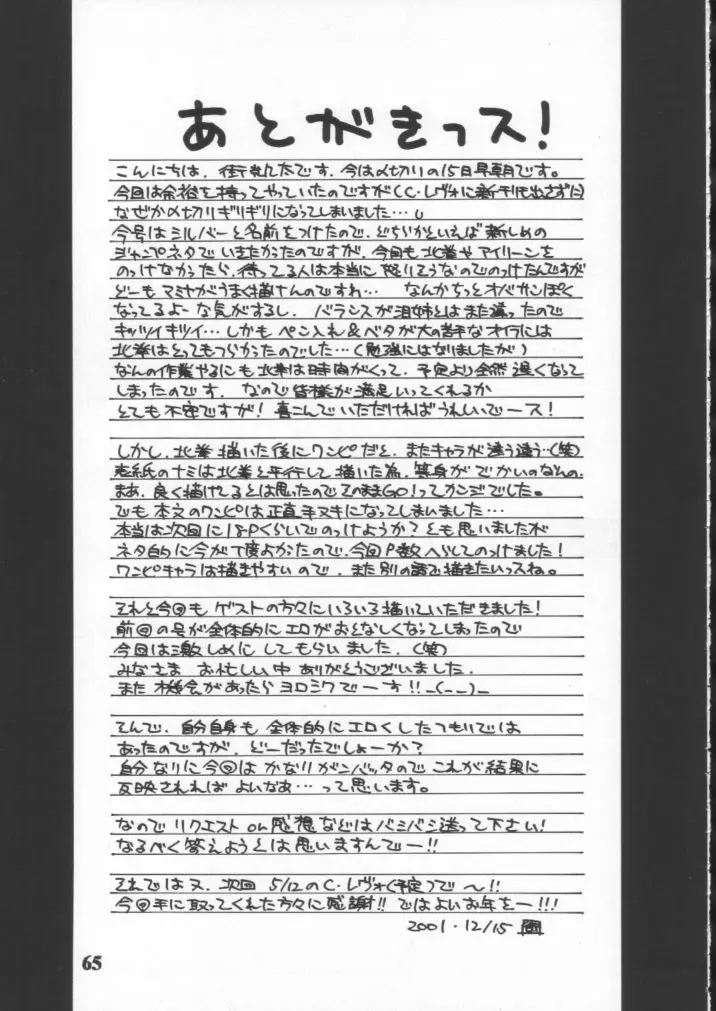 あとがきっス!
こんにちは、街です。今は〆切りの15日早朝です。
今回は余裕を持ってやっていたのですが(C・レヴォに新刊も出さずに)
なぜか〆切りギリギリになってしまいました…
今号はシルバーと名前をつけたので、どちらかといえば新しめの
ジャンプネタでいきたかったのですが、今回も北拳やアイリーンを
のっけなかったら、待ってる人は本当に怒りそうなのでのっけたんですが
どーもマミヤがうまく描けんのですわ… なんかちっとオバサンぽく
なってるよーな気がするし、バランスが泪姉とはまた違ったので
キッツイキツイ…しかもペン入れ&ベタが大の苦手なオイラには
北拳はとってもつらかったのでした…(勉強にはなりましたが)
なんの作業やるにも北拳は時間がくって、予定より全然遅くなって
しまったのです。なので皆様が満足いってくれるか
とても不安ですが!喜こんでいただければうれしいでース!
しかし、北拳描いた後にワンピだと、またキャラが違う違う…(笑)
表紙のナミは北拳と平行して描いた為、等身がでかいのなんの。
まあ、良く描けてるとは思ったのでそのままGO!ってカンジでした。
でも本文のワンピは正直手ヌキになってしまいました…
本当は次回に18Pくらいでのっけようか?とも思いましたが
ネタ的に今が丁度よかったので、今回P数へらしてのっけました!
ワンピキャラは描きやすいので、また別の話で描きたいっスね。
それと今回も ゲストの方々にいろいろ描いていただきました!
前回の号が全体的にエロがおとなしくなってしまったので
今回は激しめにしてもらいました。(笑)
みなさま お忙しい中ありがとうございました。
また機会があったらヨロシクでーす!!_(._.)_
そんで、自分自身も全体的にエロくしたつもりでは
あったのですが、どーだったでしょーか?
自分なりに今回はかなりガンバッタので これが結果に
反映されればよいなあ…って思います。
なのでリクエストor感想などはバシバシ送って下さい!
なるべく答えようとは思いますんでー!!
それではヌ、次回 5/12のC・レヴォ(予定)で〜!!
今回手に取ってくれた方々に感謝!!ではよいお年をー!!!
2001・12/15
65